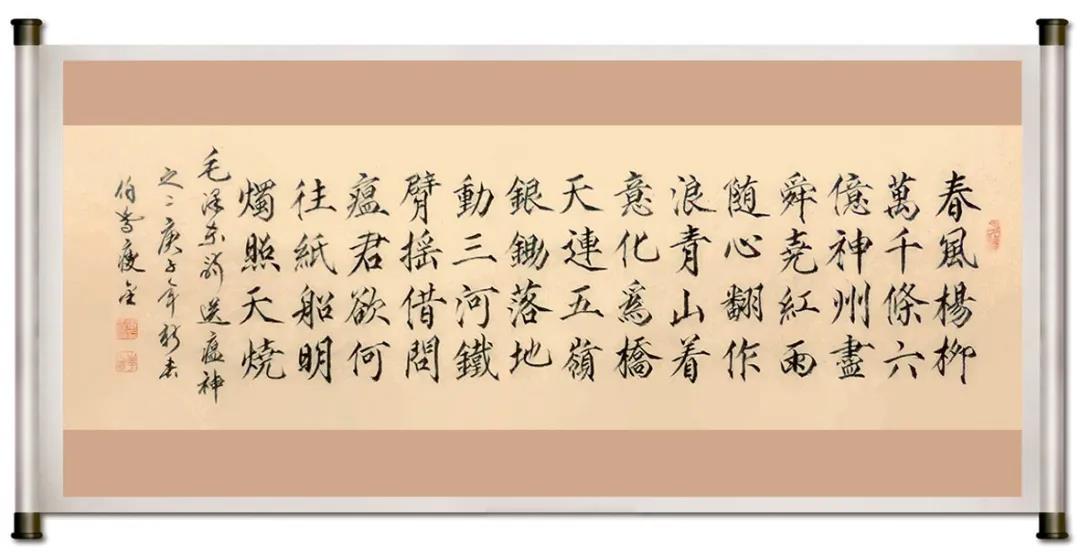 春風楊柳
萬千條六
億神州盡
舜堯紅雨
随心翻作
浪青山着
意化爲橋
天連五嶺
銀鋤落地
動三河鐵
臂摇借問
瘟君欲何
往紙船明
燭照天燒
毛泽东詩送瘟神
之二庚子年新春
伯